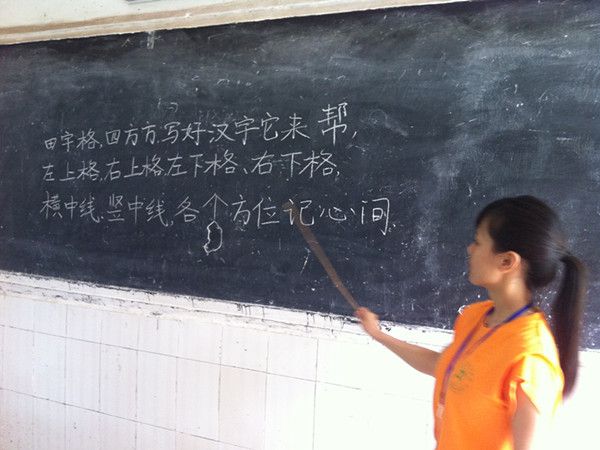 田字格,四方方,写好汉字它来帮,
左上格,右上格,左下格、右下格,
横中线,竖中线,各个方位记心间